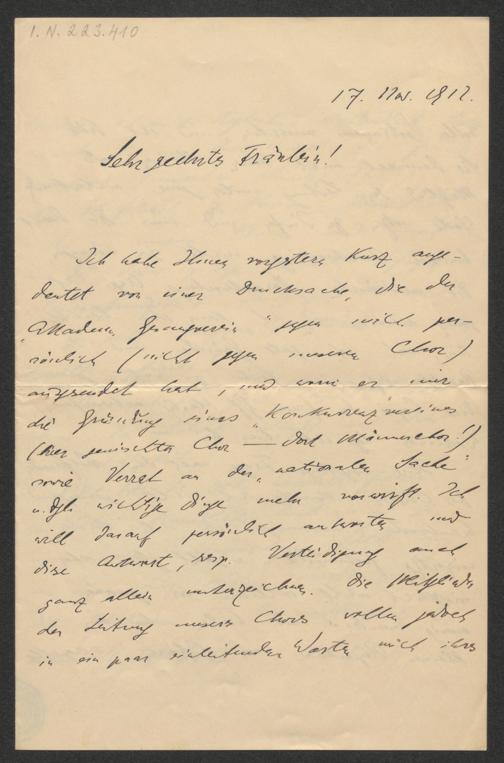 I.N. 223.410
17. Nov. 1912.
Sehr geehrtes Fräulein!
Ich habe Ihnen vorgestern kurz ange-
deutet von einer Drucksache, die der
"Akadem. Gesangverein" gegen mich per-
sönlich (nicht gegen unseren Chor)
ausgesendet hat, und worin er mir
die Gründung eines "Konkurrenzvereines"
(hier gemischter Chor — dort Männerchor!)
sowie Verrat an der "nationalen Sache"
u. dgl. wichtige Dinge mehr vorwirft. Ich
will darauf persönlich antworten und
diese Antwort, resp. Verteidigung auch
ganz allein unterzeichnen. Die Mitglieder
der Leitung unseres Chors wollen jedoch
in ein paar einleitenden Worten mich ihres